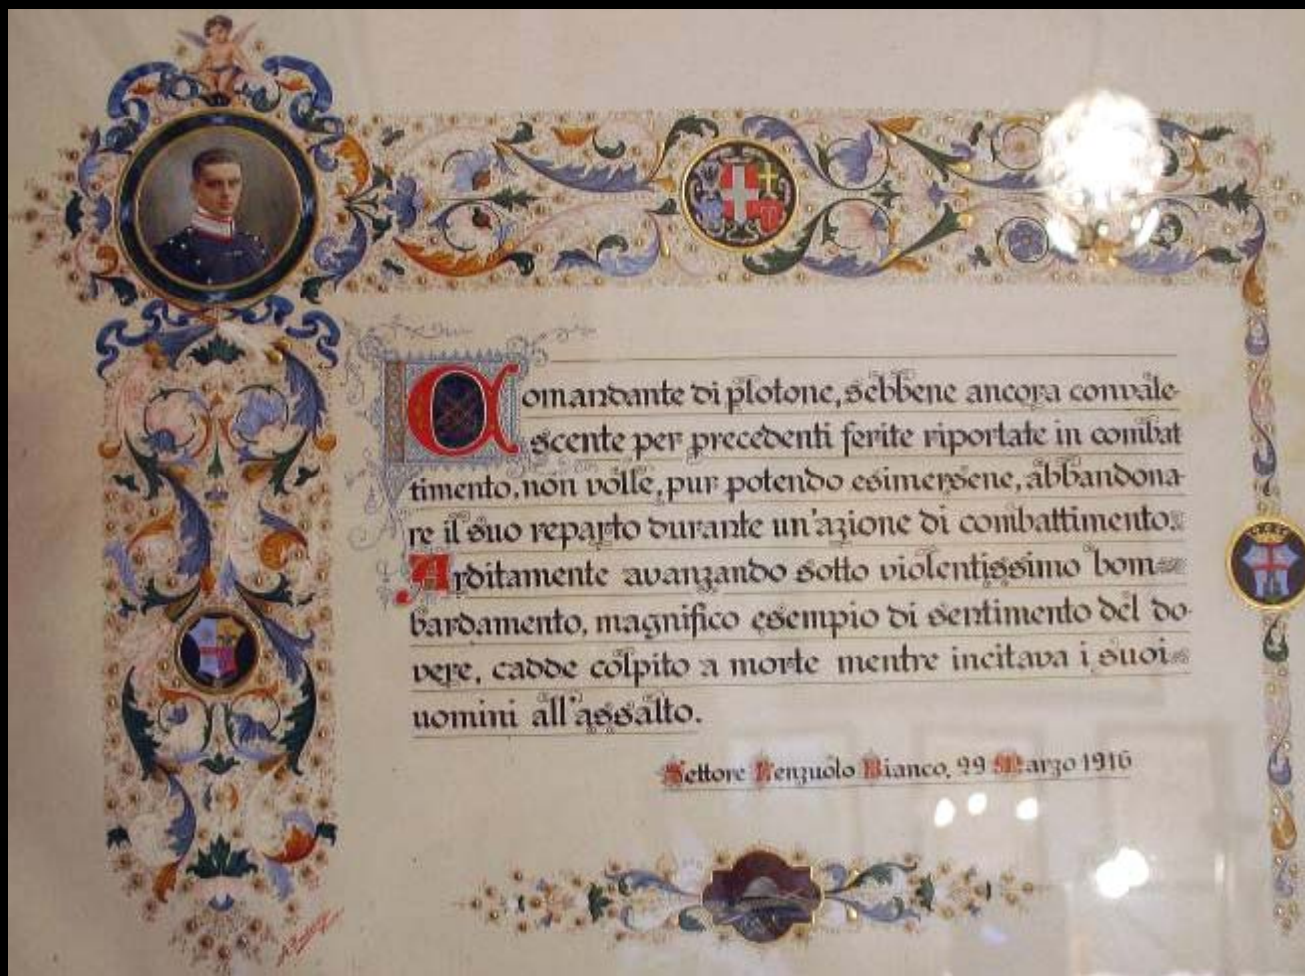 Comandante di plotone, sebbene ancora convale-
scente per precedenti ferite riportate in combat
timento, non volle, pur potendo esimersene, abbandona-
re il suo reparto durante un'azione di combattimento.
Arditamente avanzando sotto violentissimo bom=
bardamento, magnifico esempio di sentimento del do-
vere, cadde colpito a morte mentre incitava i suoi
uomini all'assalto.
Settore Lenzuolo Bianco, 29 Marzo 1916